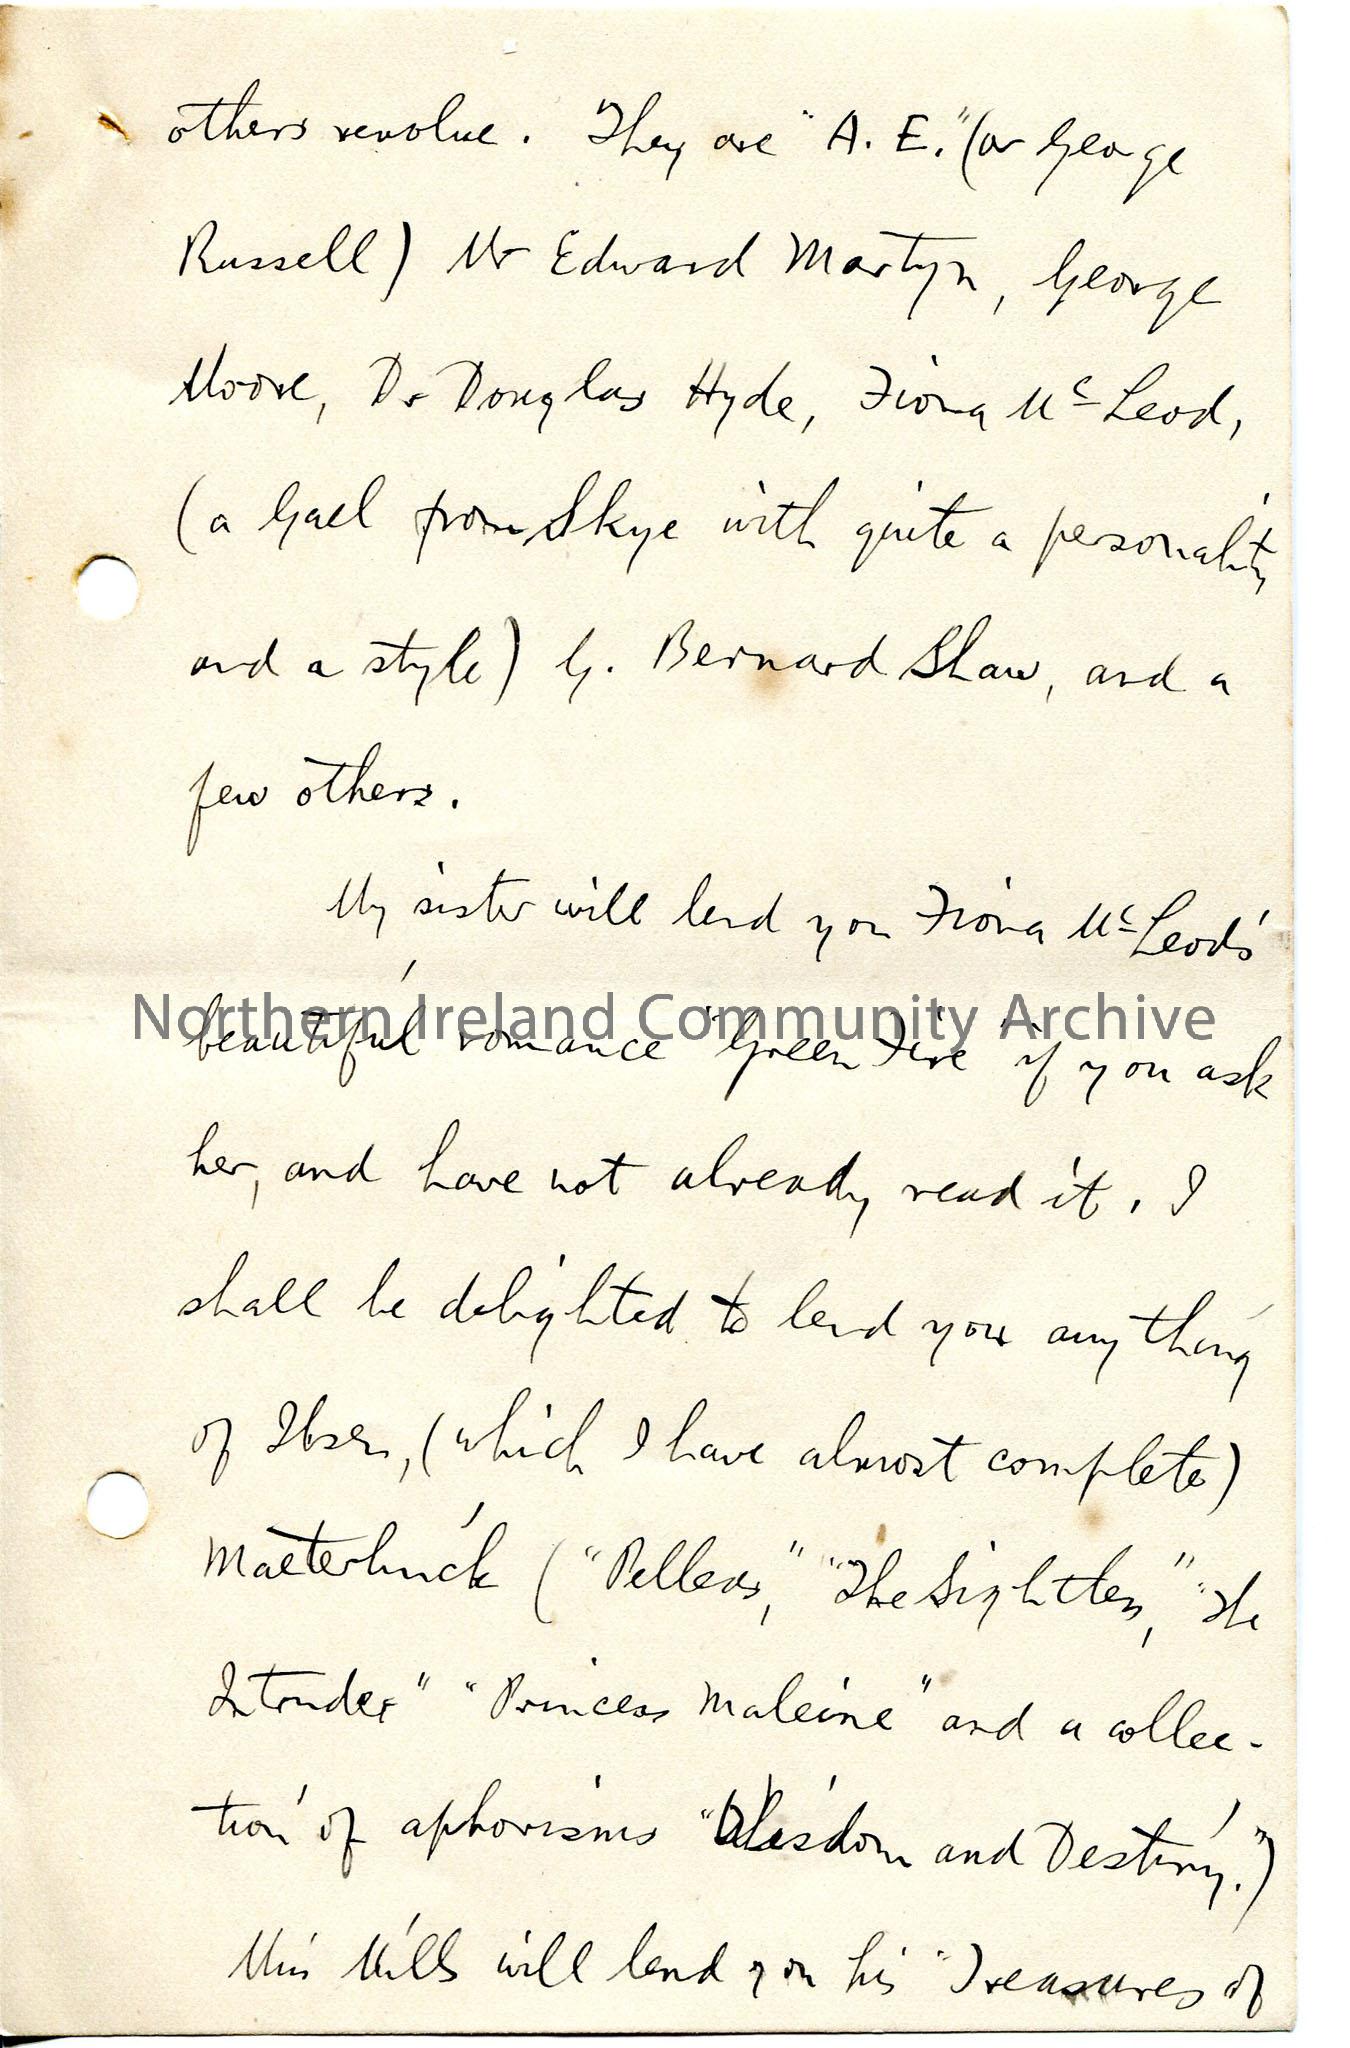 others revolve. They are "A. E." (or George
Russell) Mr Edward Martyn, George
Moore, Dr Douglas Hyde, Fiona McLeod,
(a Gael from Skye with quite a personality
and a style) G. Bernard Shaw, and a
few others.
My sister will lend you Fiona McLeod's
Northern Ireland Community Archive
beautiful romance "Green Fire" if you ask
her, and have not already read it. I
shall be delighted to lend you anything
of Ibsen, (which I have almost complete)
Maeterlinck ("Pelleas," "The Sightless," "The
Intruder" "Princess Maleine" and a collec-
tion of aphorisms "Wisdom and Destiny.")
Miss Mills will lend you his "Treasures of